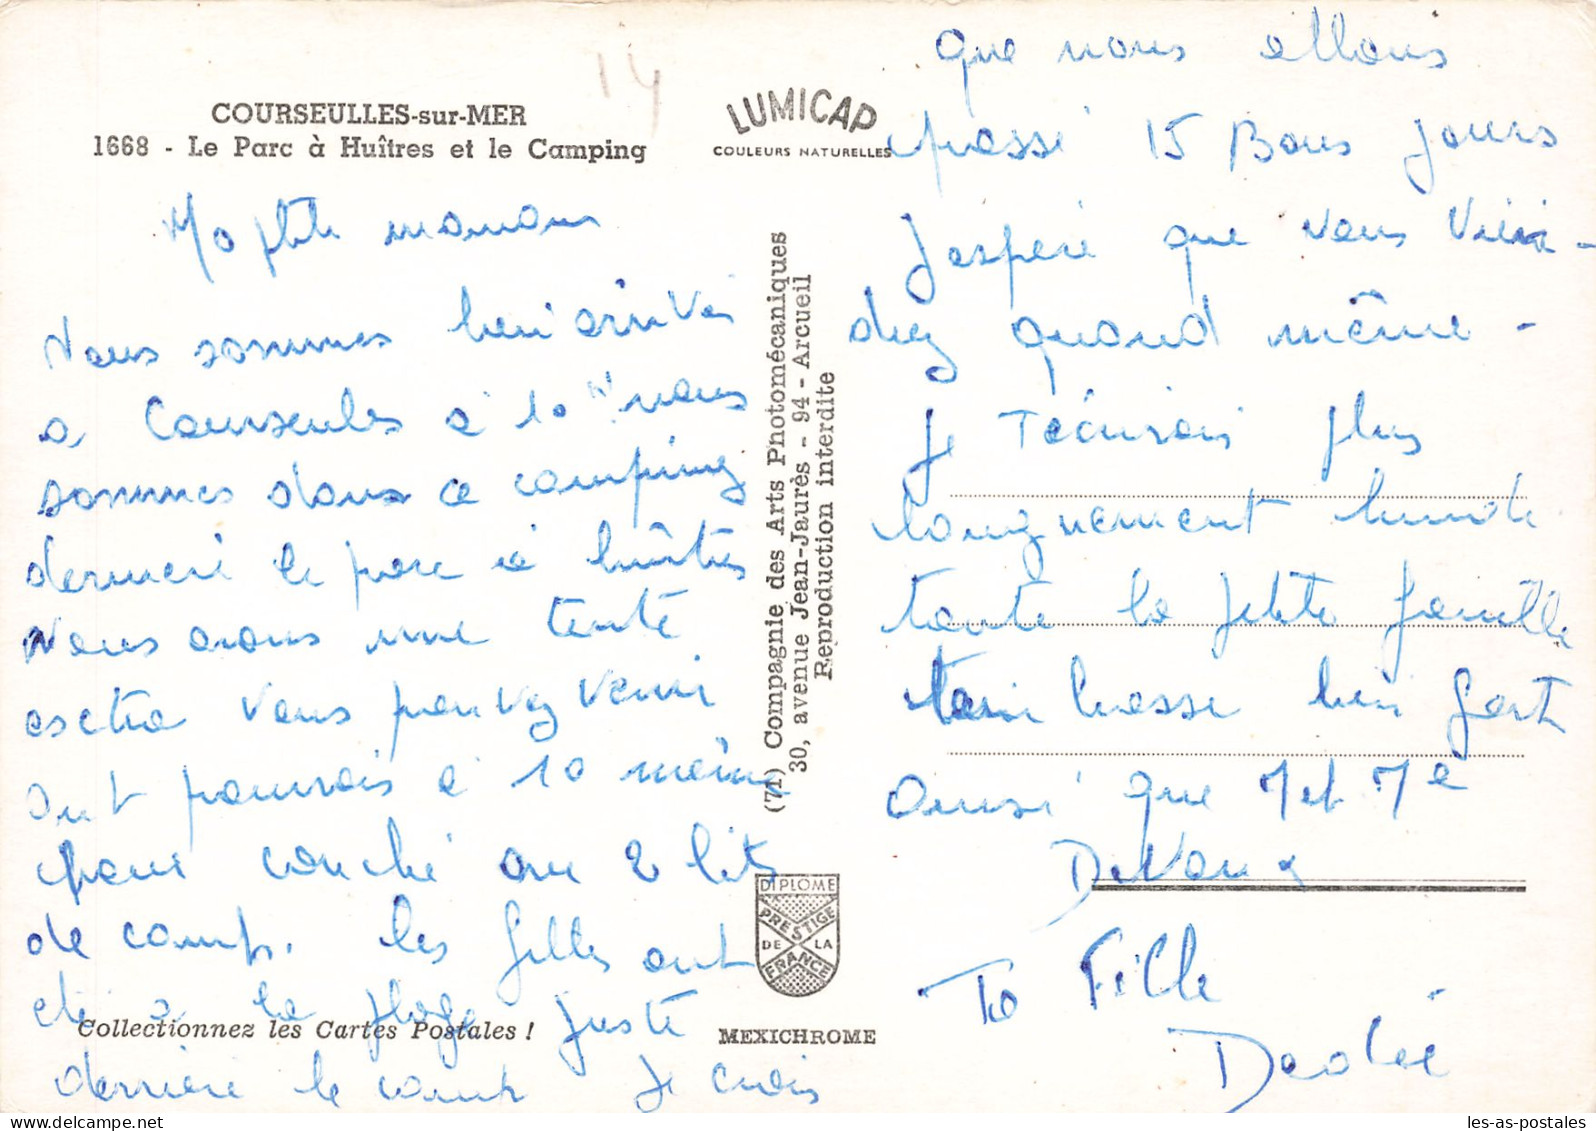 14
COURSEULLES-sur-MER
1668 - Le Parc à Huîtres et le Camping
LUMICAP
COULEURS NATURELLES
Ma ptite maman
Nous sommes bien arrivés
a Courseulles à 10 H nous
sommes dans ce camping
derrieri le parc à huîtres
Nous avons une tente
esctra vous pouvez venir
ont pourrais à 10 même
pour couché on 2 lits
de camp. les filles ont
été a la plage juste
derrière le camp Je crois
que nous allons
passé 15 Bons jours
Jespère que vous vien-
drez quand même -
Je Técrirais plus
longuement lundi
toute la petite famille
t'embrasse bien fort
Ainsi que M et Me
DeVaux
Ta Fille
(71) Compagnie des Arts Photomécaniques
30, avenue Jean-Jaurès - 94 - Arcueil
Reproduction interdite
DIPLOME
PRESTIGE
DE LA
FRANCE
Collectionnez les Cartes Postales !
MEXICHROME
les-as-postales.com